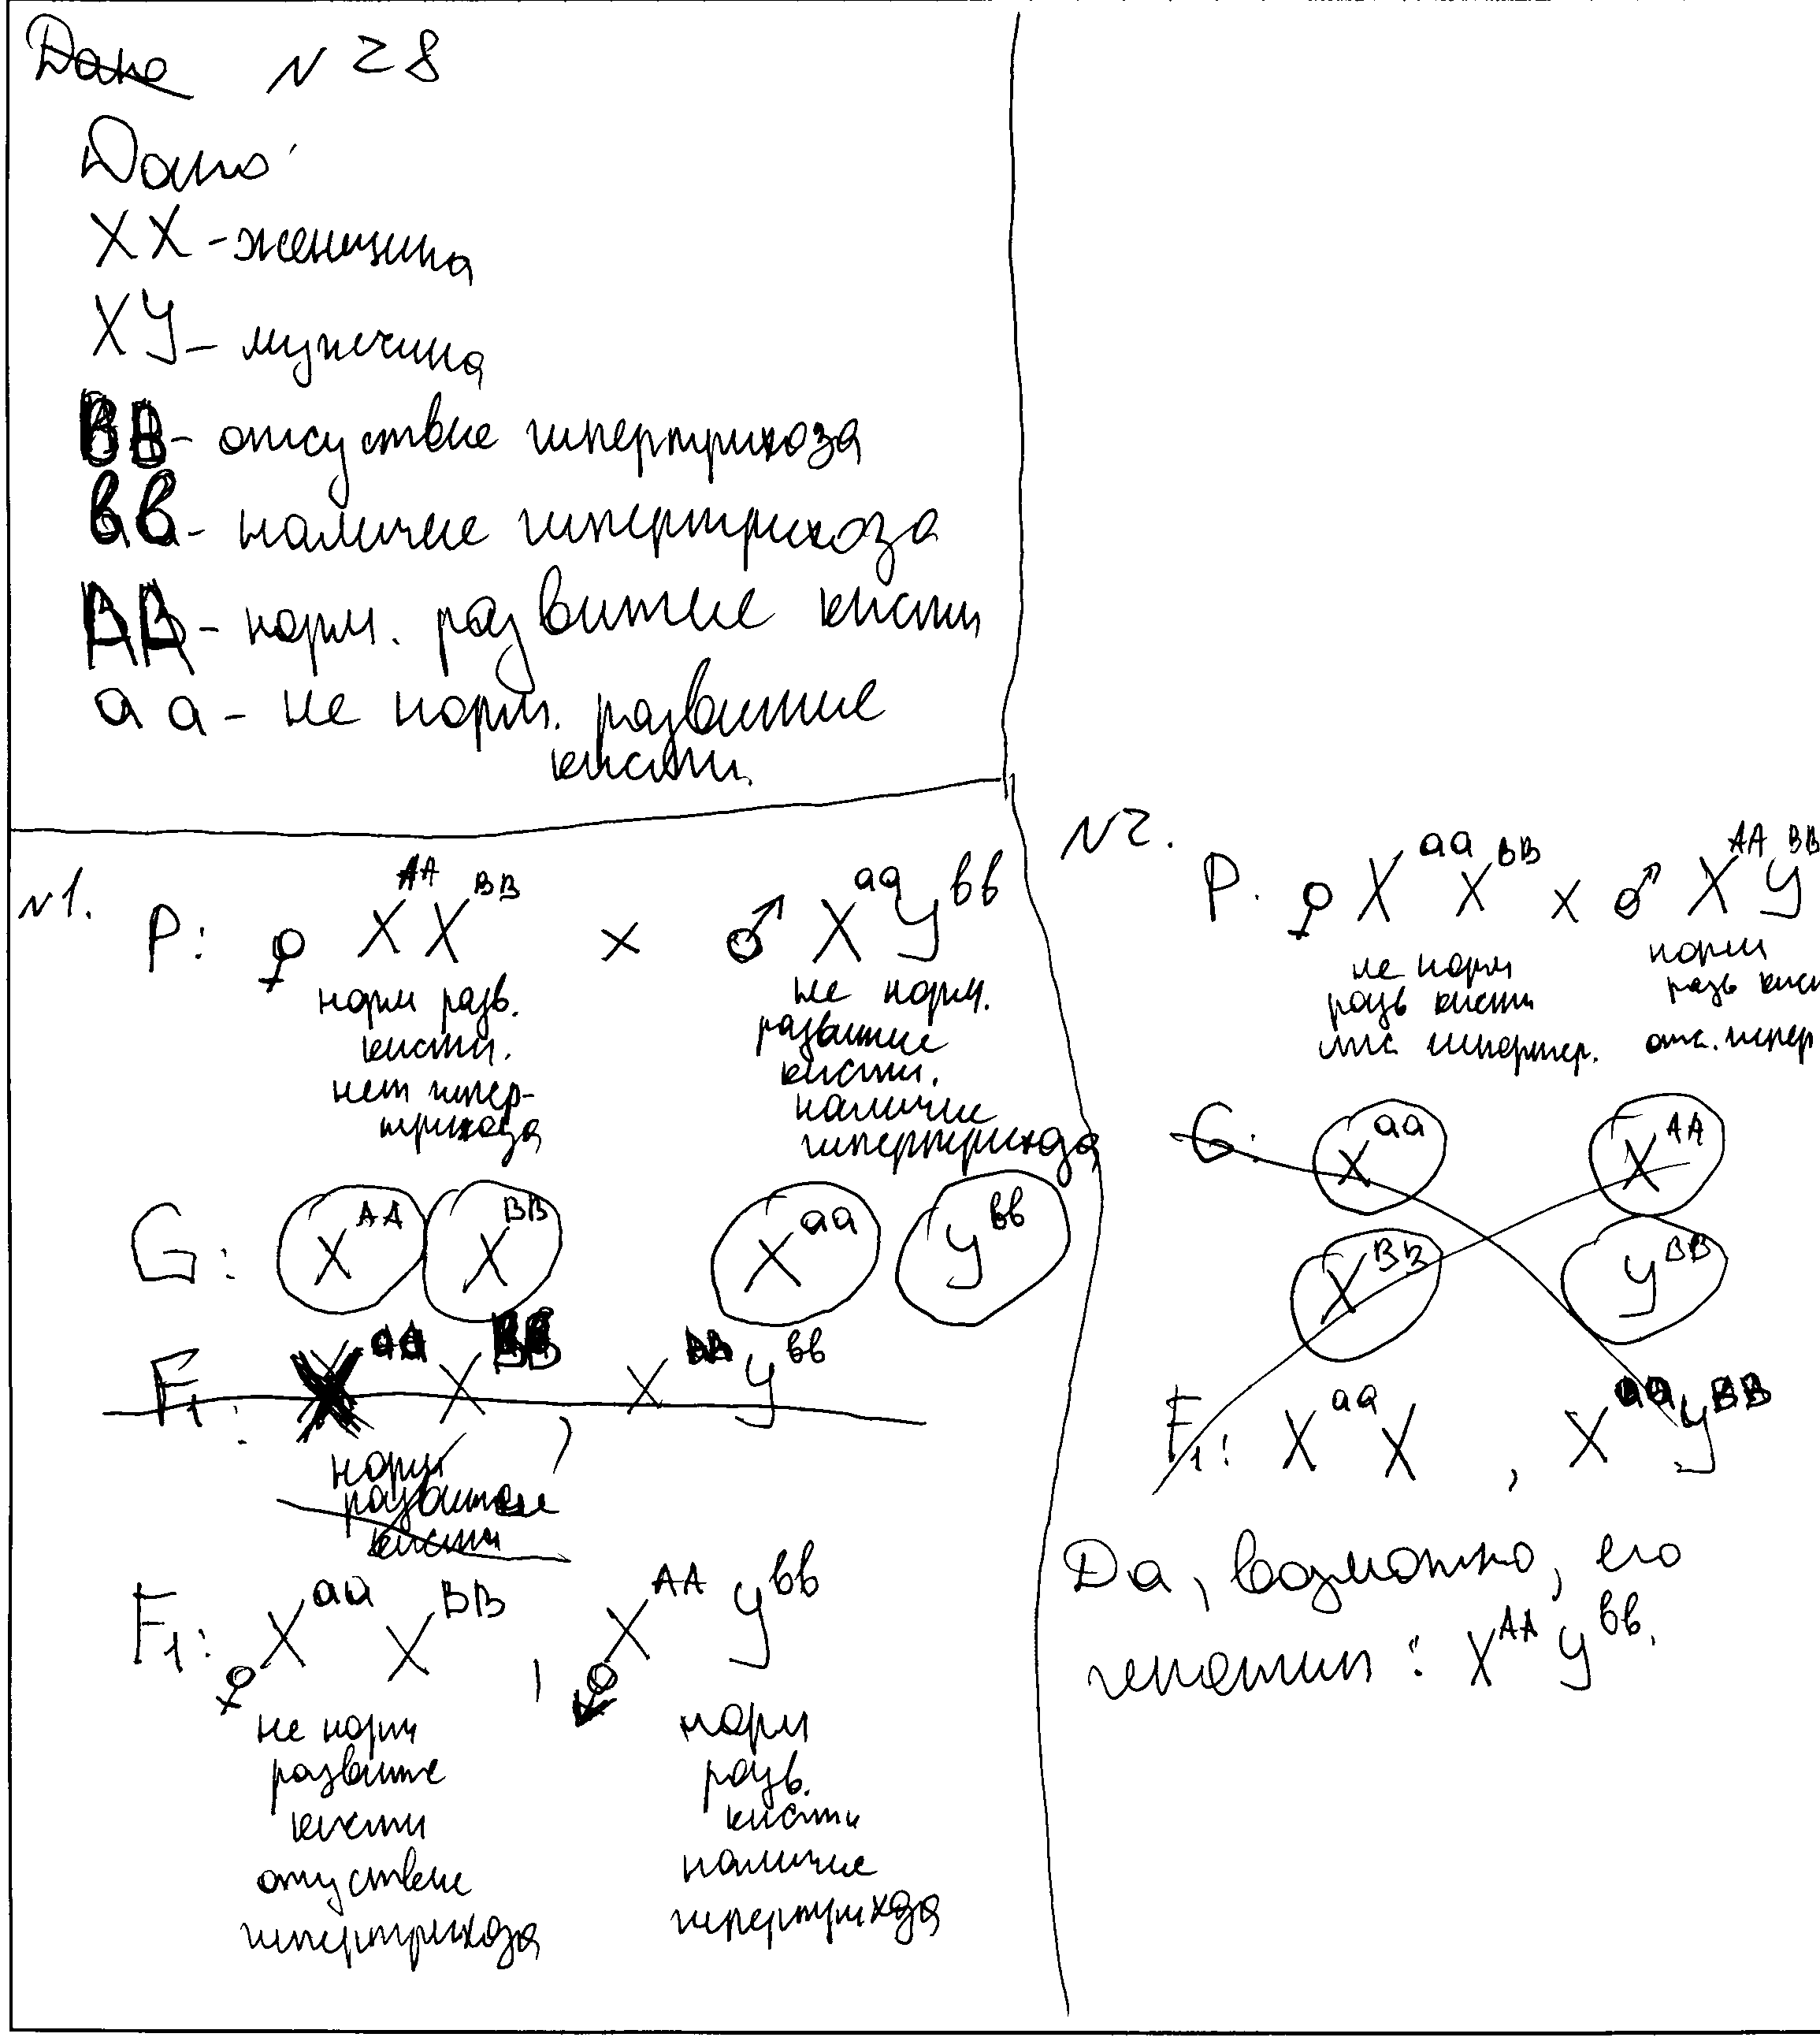 Дано N 28
Дано:
XX - женщина
XY - мужчина
BB - отсуствие гипертрихоза
вв - наличие гипертрихоза
AA - норм. развитие кисти
aa - не норм. развитие
кисти.
N1.
P: ♀ X^AA X^BB × ♂ X^aa Y^вв
норм разв.
кисти.
нет гипер-
трихоза
не норм.
развитие
кисти.
наличие
гипертрихоза
G: X^AA X^BB X^aa Y^вв
F1: X^aa X^BB , X Y^вв
норм
развитие
кисти
F1: ♀ X^aa X^BB , X^AA Y^вв
не норм
развите
кисти
отсуствие
гипертрихоза
норм
разв.
кисти
наличие
гипертрихоза
N2.
P. ♀ X^aa X^BB × ♂ X^AA Y^BB
не норм
разв кисти
норм
разв кис
отс. гипер
G: X^aa X^AA
X^BB Y^BB
F1: X^aa X , X^aa Y^BB
Да, возможно, его
генотип: X^AA Y^вв.